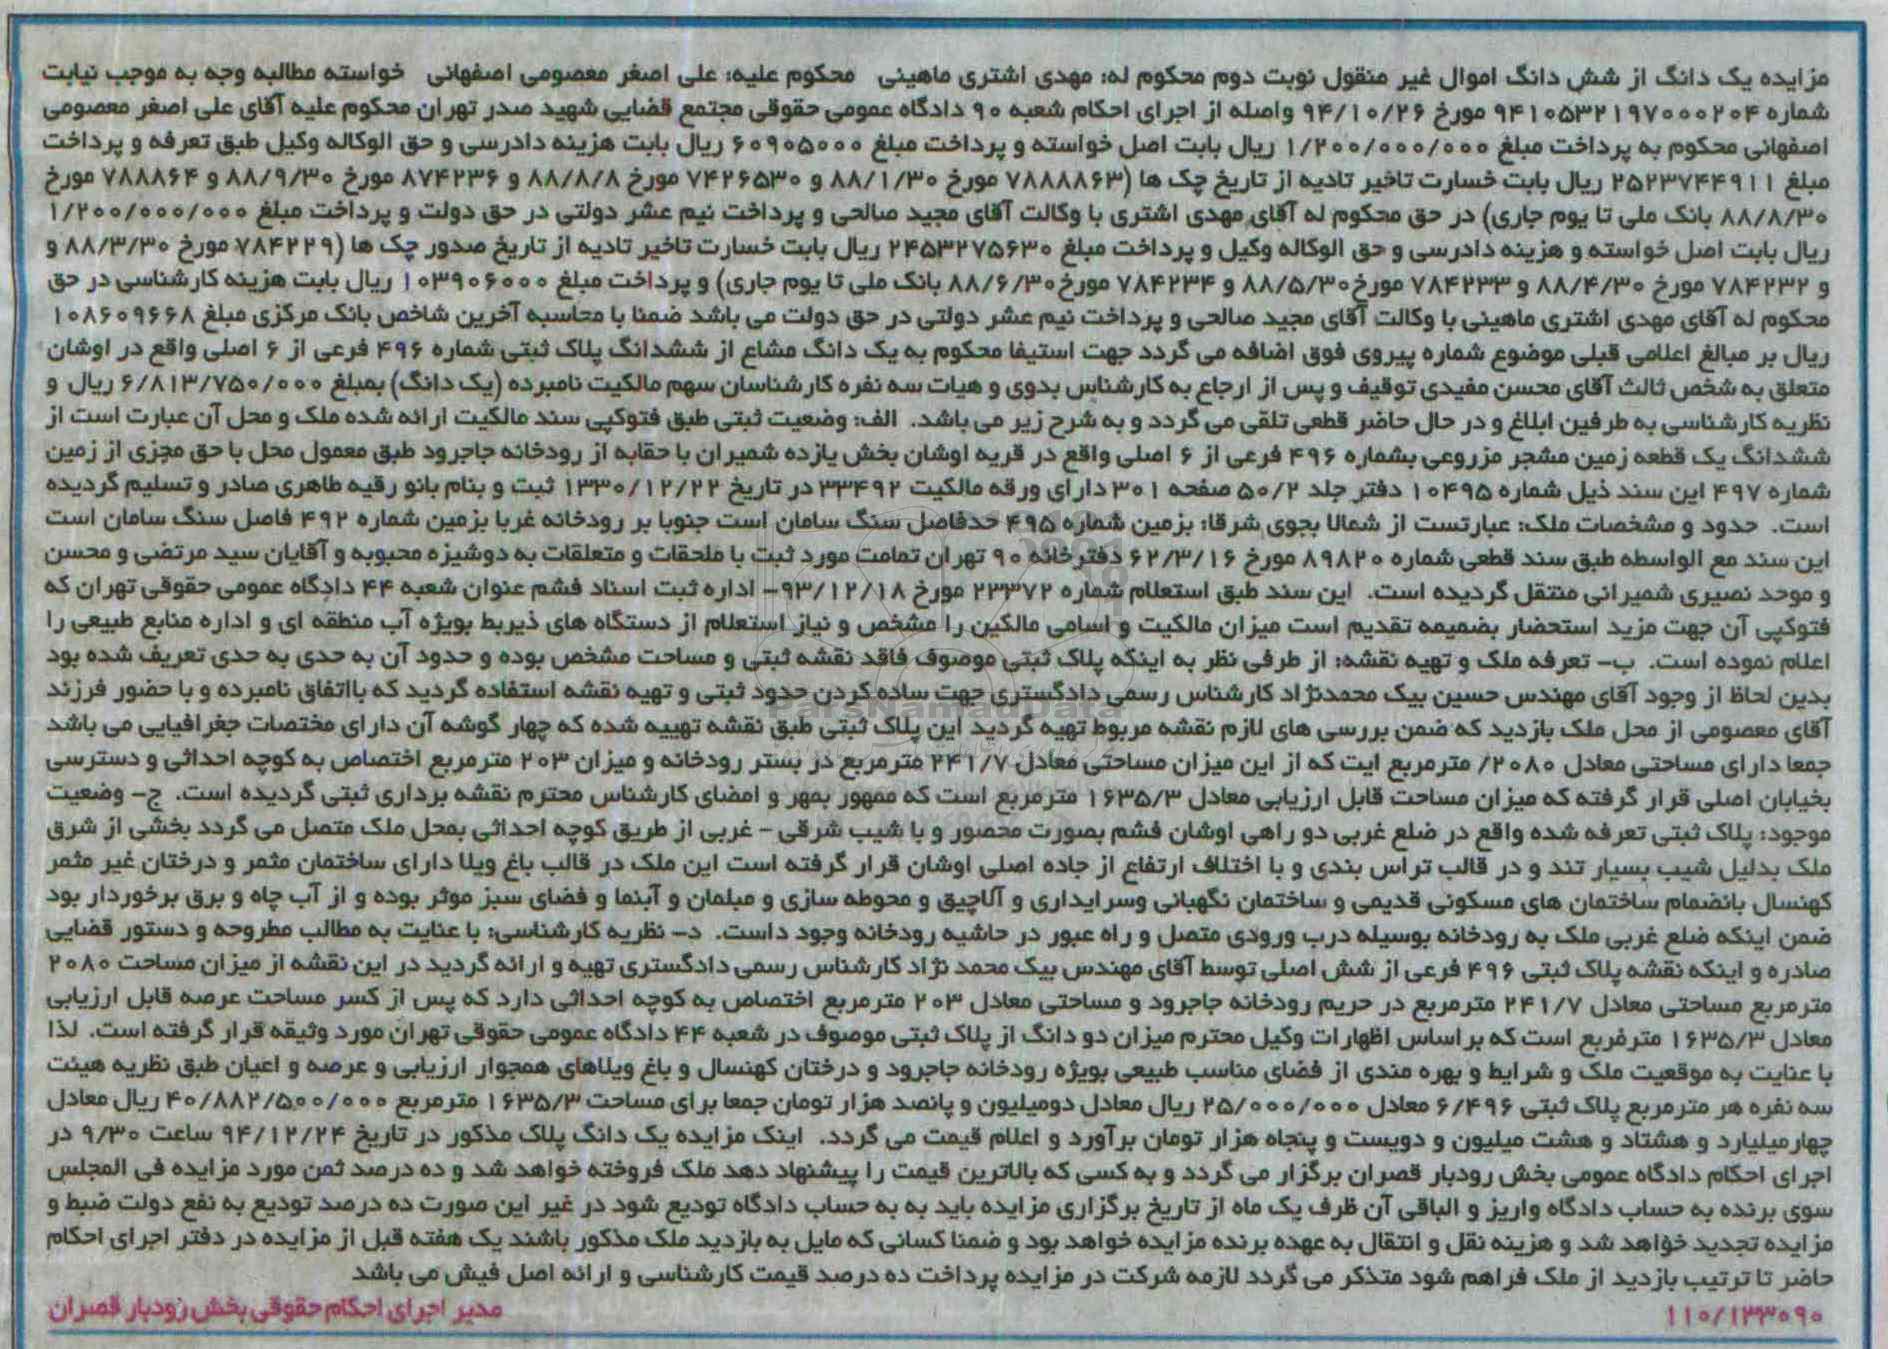 مزایده یک دانگ از شش دانگ اموال غیر منقول نوبت دوم محکوم له: مهدی اشتری ماهینی محکوم علیه: علی اصغر معصومی اصفهانی خواسته مطالبه وجه به موجب نیابت
شماره ۹۴۱۰۵۳۲۱۹۷۰۰۰۲۰۴ مورخ ۹۴/۱۰/۲۶ واصله از اجرای احکام شعبه ۹۰ دادگاه عمومی حقوقی مجتمع قضایی شهید صدر تهران محکوم علیه آقای علی اصغر معصومی
اصفهانی محکوم به پرداخت مبلغ ۱/۲۰۰/۰۰۰/۰۰۰ ریال بابت اصل خواسته و پرداخت مبلغ ۶۰۹۰۵۰۰۰ ریال بابت هزینه دادرسی و حق الوکاله وکیل طبق تعرفه و پرداخت
مبلغ ۲۵۲۳۷۴۴۹۱۱ ریال بابت خسارت تاخیر تادیه از تاریخ چک ها (۷۸۸۸۸۶۳ مورخ ۸۸/۱/۳۰ و ۷۴۲۶۵۳۰ مورخ ۸۸/۸/۸ و ۸۷۴۲۳۶ مورخ ۸۸/۹/۳۰ و ۷۸۸۸۶۴ مورخ
۸۸/۸/۳۰ بانک ملی تا یوم جاری) در حق محکوم له آقای مهدی اشتری با وکالت آقای مجید صالحی و پرداخت نیم عشر دولتی در حق دولت و پرداخت مبلغ ۱/۲۰۰/۰۰۰/۰۰۰
ریال بابت اصل خواسته و هزینه دادرسی و حق الوکاله وکیل و پرداخت مبلغ ۲۴۵۳۲۷۵۶۳۰ ریال بابت خسارت تاخیر تادیه از تاریخ صدور چک ها (۷۸۴۲۲۹ مورخ ۸۸/۳/۳۰ و
و ۷۸۴۲۳۲ مورخ ۸۸/۴/۳۰ و ۷۸۴۲۳۳ مورخ۸۸/۵/۳۰ و ۷۸۴۲۳۴ مورخ۸۸/۶/۳۰ بانک ملی تا یوم جاری) و پرداخت مبلغ ۱۰۳۹۰۶۰۰۰ ریال بابت هزینه کارشناسی در حق
محکوم له آقای مهدی اشتری ماهینی با وکالت آقای مجید صالحی و پرداخت نیم عشر دولتی در حق دولت می باشد ضمنا با محاسبه آخرین شاخص بانک مرکزی مبلغ ۱۰۸۶۰۹۶۶۸
ریال بر مبالغ اعلامی قبلی موضوع شماره پیروی فوق اضافه می گردد جهت استیفا محکوم به یک دانگ مشاع از ششدانگ پلاک ثبتی شماره ۴۹۶ فرعی از ۶ اصلی واقع در اوشان
متعلق به شخص ثالث آقای محسن مفیدی توقیف و پس از ارجاع به کارشناس بدوی و هیات سه نفره کارشناسان سهم مالکیت نامبرده (یک دانگ) بمبلغ ۶/۸۱۳/۷۵۰/۰۰۰ ریال و
نظریه کارشناسی به طرفین ابلاغ و در حال حاضر قطعی تلقی می گردد و به شرح زیر می باشد. الف: وضعیت ثبتی طبق فتوکپی سند مالکیت ارائه شده ملک و محل آن عبارت است از
ششدانگ یک قطعه زمین مشجر مزروعی بشماره ۴۹۶ فرعی از ۶ اصلی واقع در قریه اوشان بخش یازده شمیران با حقابه از رودخانه جاجرود طبق معمول محل با حق مجزی از زمین
شماره ۴۹۷ این سند ذیل شماره ۱۰۴۹۵ دفتر جلد ۵۰/۲ صفحه ۳۰۱ دارای ورقه مالکیت ۳۳۴۹۲ در تاریخ ۱۳۳۰/۱۲/۲۲ ثبت و بنام بانو رقیه طاهری صادر و تسلیم گردیده
است. حدود و مشخصات ملک: عبارتست از شمالا بجوی شرقا: بزمین شماره ۴۹۵ حدفاصل سنگ سامان است جنوبا بر رودخانه غربا بزمین شماره ۴۹۲ فاصل سنگ سامان است
این سند مع الواسطه طبق سند قطعی شماره ۸۹۸۲۰ مورخ ۶۲/۳/۱۶ دفترخانه ۹۰ تهران تمامت مورد ثبت با ملحقات و متعلقات به دوشیزه محبوبه و آقایان سید مرتضی و محسن
و موحد نصیری شمیرانی منتقل گردیده است. این سند طبق استعلام شماره ۲۳۳۷۲ مورخ ۹۳/۱۲/۱۸– اداره ثبت اسناد فشم عنوان شعبه ۴۴ دادگاه عمومی حقوقی تهران که
فتوکپی آن جهت مزید استحضار بضمیمه تقدیم است میزان مالکیت و اسامی مالکین را مشخص و نیاز استعلام از دستگاه های ذیربط بویژه آب منطقه ای و اداره منابع طبیعی را
اعلام نموده است. ب– تعرفه ملک و تهیه نقشه: از طرفی نظر به اینکه پلاک ثبتی موصوف فاقد نقشه ثبتی و مساحت مشخص بوده و حدود آن به حدی به حدی تعریف شده بود
بدین لحاظ از وجود آقای مهندس حسین بیک محمدنژاد کارشناس رسمی دادگستری جهت ساده کردن حدود ثبتی و تهیه نقشه استفاده گردید که بااتفاق نامبرده و با حضور فرزند
آقای معصومی از محل ملک بازدید که ضمن بررسی های لازم نقشه مربوط تهیه گردید این پلاک ثبتی طبق نقشه تهییه شده که چهار گوشه آن دارای مختصات جغرافیایی می باشد
جمعا دارای مساحتی معادل ۲۰۸۰/ مترمربع ایت که از این میزان مساحتی معادل ۲۴۱/۷ مترمربع در بستر رودخانه و میزان ۲۰۳ مترمربع اختصاص به کوچه احداثی و دسترسی
بخیابان اصلی قرار گرفته که میزان مساحت قابل ارزیابی معادل ۱۶۳۵/۳ مترمربع است که ممهور بمهر و امضای کارشناس محترم نقشه برداری ثبتی گردیده است. ج– وضعیت
موجود: پلاک ثبتی تعرفه شده واقع در ضلع غربی دو راهی اوشان فشم بصورت محصور و با شیب شرقی – غربی از طریق کوچه احداثی بمحل ملک متصل می گردد بخشی از شرق
ملک بدلیل شیب بسیار تند و در قالب تراس بندی و با اختلاف ارتفاع از جاده اصلی اوشان قرار گرفته است این ملک در قالب باغ ویلا دارای ساختمان مثمر و درختان غیر مثمر
کهنسال بانضمام ساختمان های مسکونی قدیمی و ساختمان نگهبانی وسرایداری و آلاچیق و محوطه سازی و مبلمان و آبنما و فضای سبز موثر بوده و از آب چاه و برق برخوردار بود
ضمن اینکه ضلع غربی ملک به رودخانه بوسیله درب ورودی متصل و راه عبور در حاشیه رودخانه وجود داست. د– نظریه کارشناسی: با عنایت به مطالب مطروحه و دستور قضایی
صادره و اینکه نقشه پلاک ثبتی ۴۹۶ فرعی از شش اصلی توسط آقای مهندس بیک محمد نژاد کارشناس رسمی دادگستری تهیه و ارائه گردید در این نقشه از میزان مساحت ۲۰۸۰
مترمربع مساحتی معادل ۲۴۱/۷ مترمربع در حریم رودخانه جاجرود و مساحتی معادل ۲۰۳ مترمربع اختصاص به کوچه احداثی دارد که پس از کسر مساحت عرصه قابل ارزیابی
معادل ۱۶۳۵/۳ مترمربع است که براساس اظهارات وکیل محترم میزان دو دانگ از پلاک ثبتی موصوف در شعبه ۴۴ دادگاه عمومی حقوقی تهران مورد وثیقه قرار گرفته است. لذا
با عنایت به موقعیت ملک و شرایط و بهره مندی از فضای مناسب طبیعی بویژه رودخانه جاجرود و درختان کهنسال و باغ ویلاهای همجوار ارزیابی و عرصه و اعیان طبق نظریه هیئت
سه نفره هر مترمربع پلاک ثبتی ۶/۴۹۶ معادل ۲۵/۰۰۰/۰۰۰ ریال معادل دومیلیون و پانصد هزار تومان جمعا برای مساحت ۱۶۳۵/۳ مترمربع ۴۰/۸۸۲/۵۰۰/۰۰۰ ریال معادل
چهارمیلیارد و هشتاد و هشت میلیون و دویست و پنجاه هزار تومان برآورد و اعلام قیمت می گردد. اینک مزایده یک دانگ پلاک مذکور در تاریخ ۹۴/۱۲/۲۴ ساعت ۹/۳۰ در
اجرای احکام دادگاه عمومی بخش رودبار قصران برگزار می گردد و به کسی که بالاترین قیمت را پیشنهاد دهد ملک فروخته خواهد شد و ده درصد ثمن مورد مزایده فی المجلس
سوی برنده به حساب دادگاه واریز و الباقی آن ظرف یک ماه از تاریخ برگزاری مزایده باید به به حساب دادگاه تودیع شود در غیر این صورت ده درصد تودیع به نفع دولت ضبط و
مزایده تجدید خواهد شد و هزینه نقل و انتقال به عهده برنده مزایده خواهد بود و ضمنا کسانی که مایل به بازدید ملک مذکور باشند یک هفته قبل از مزایده در دفتر اجرای احکام
حاضر تا ترتیب بازدید از ملک فراهم شود متذکر می گردد لازمه شرکت در مزایده پرداخت ده درصد قیمت کارشناسی و ارائه اصل فیش می باشد
۱۱۰/۱۳۳۰۹۰ مدیر اجرای احکام حقوقی بخش رودبار قصران
ParsNamadData